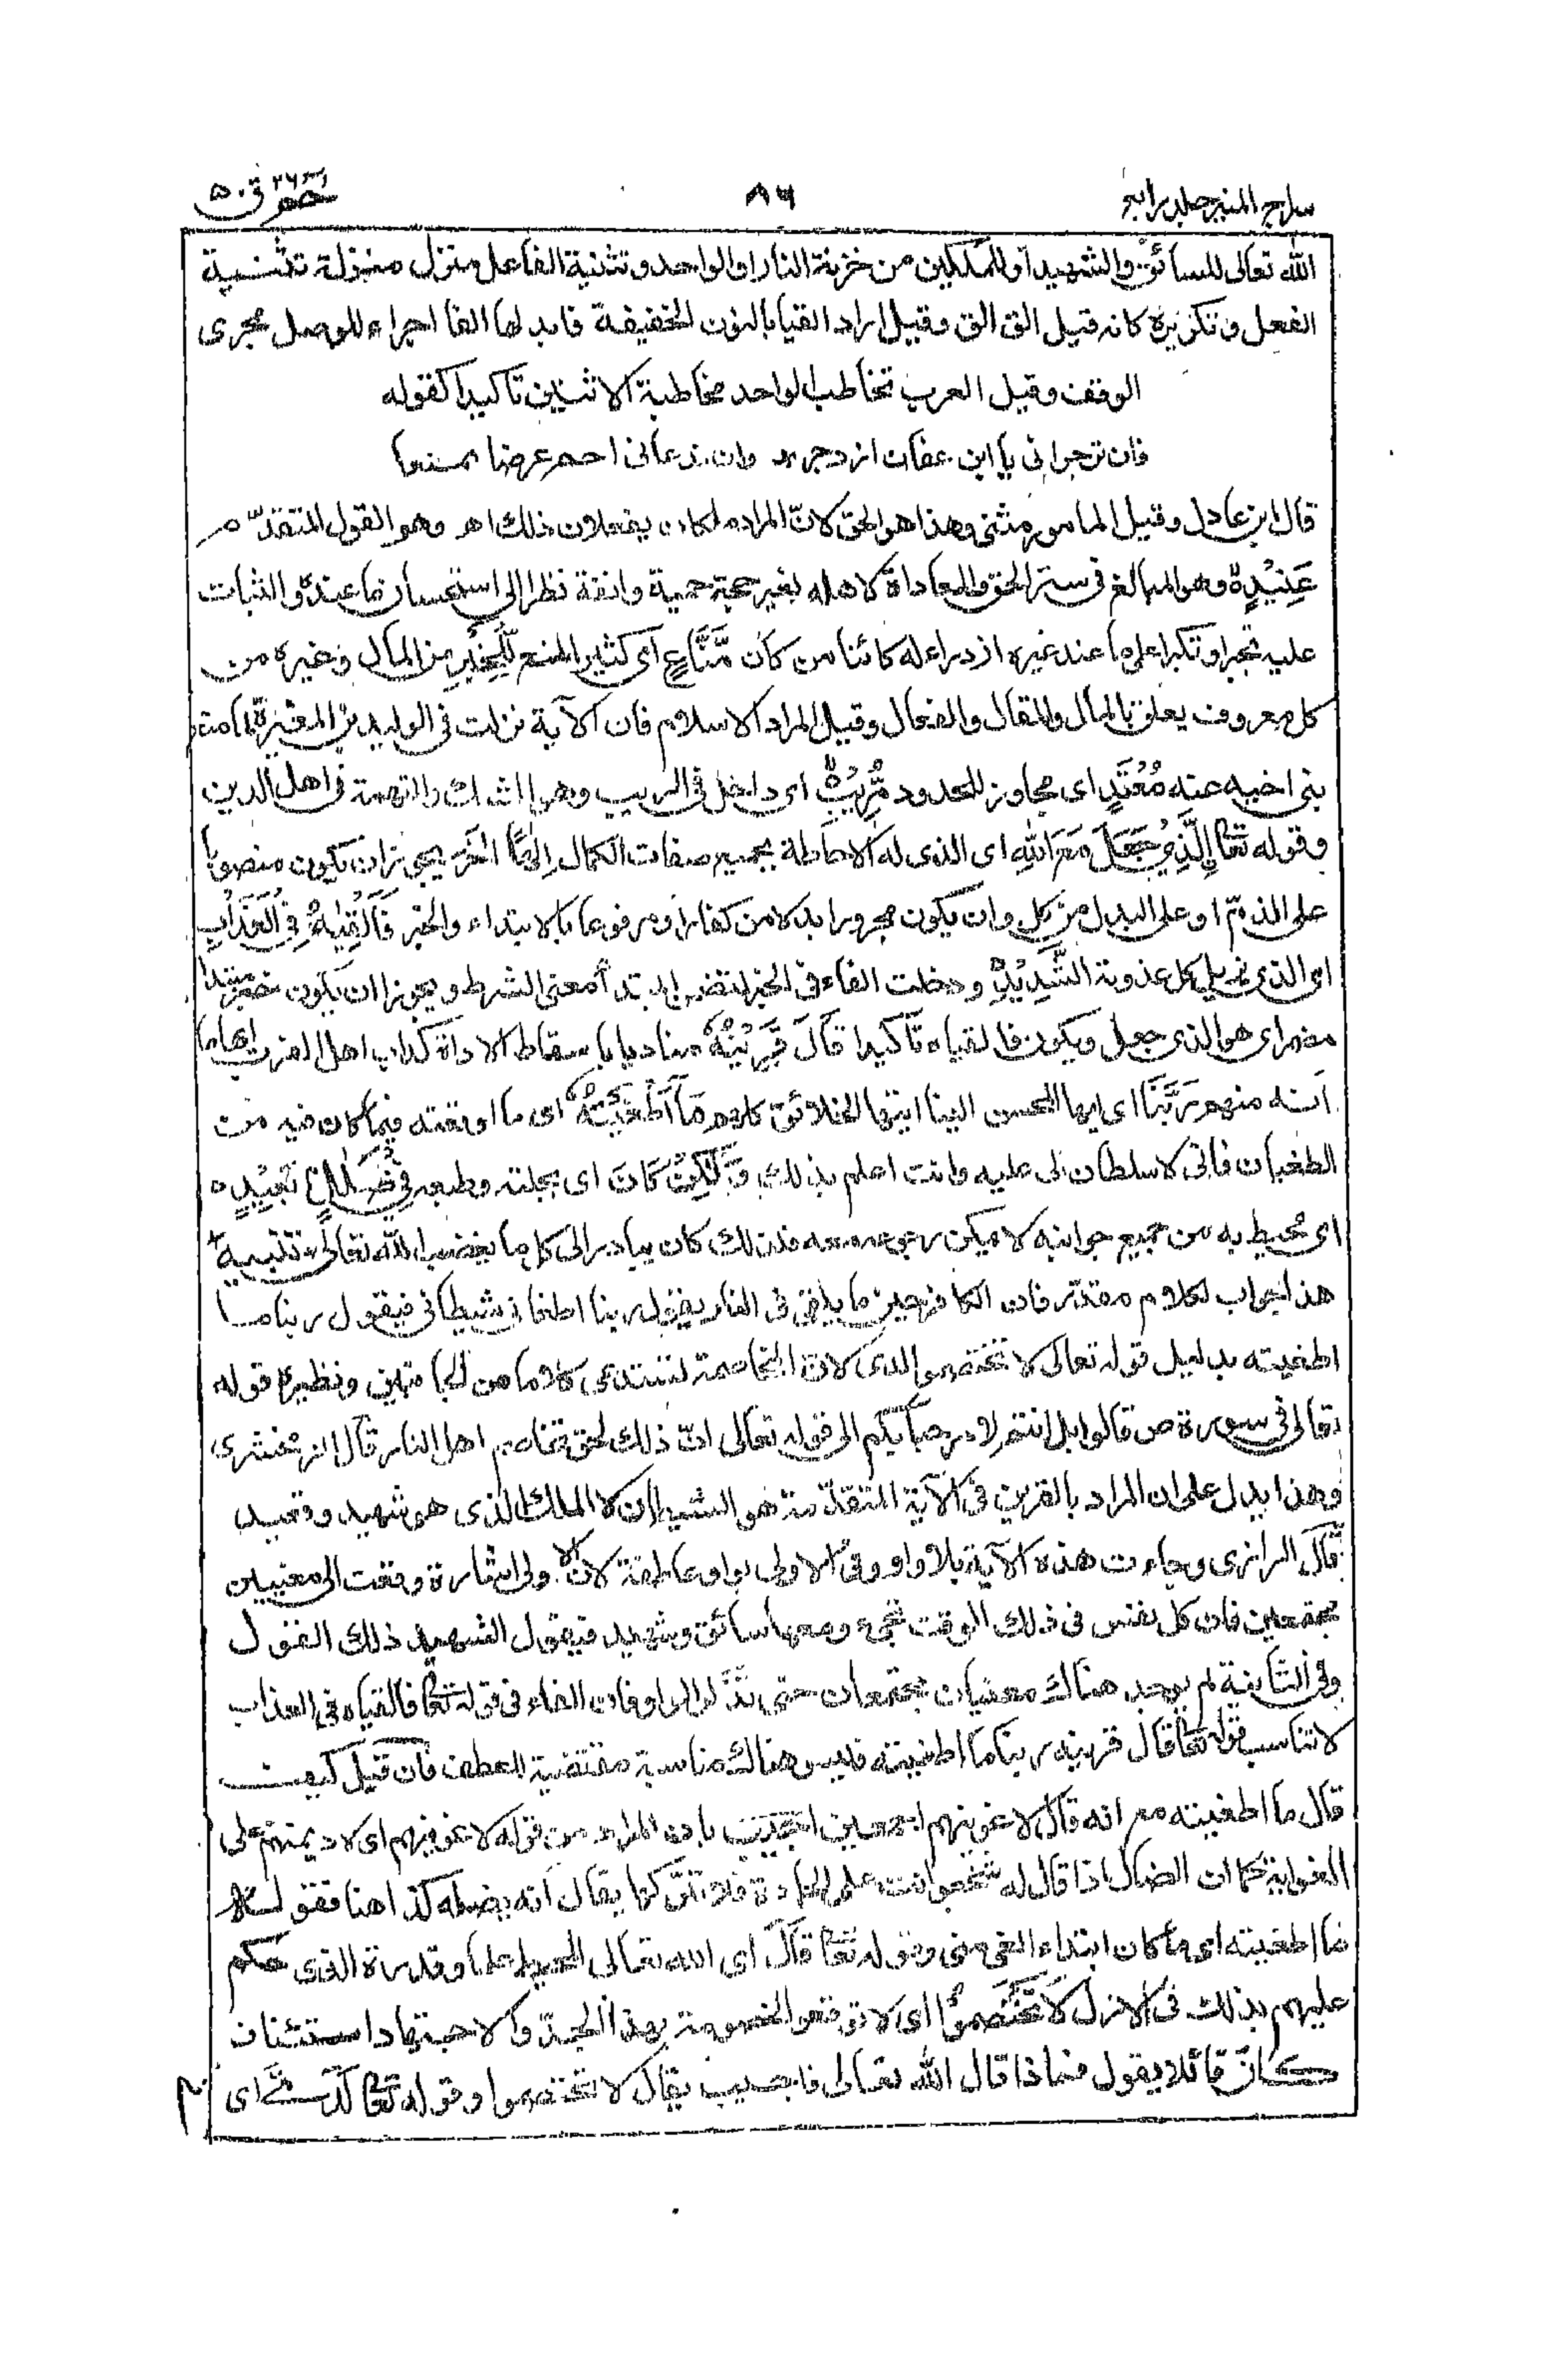 سراج المنير جلد رابع ٨٦ حٰمٓ ٢٦ قٓ ٥٠
الله تعالى للسائق والشهيد أو للملكين من خزنة النار او الواحد وتثنية الفاعل منزل منزلة تثنية
الفعل وتكريره كانه قيل الق الق وقيل اراد القيا بالنون الخفيفة فابدلها الفا اجراء للوصل مجرى
الوقف وقيل العرب تخاطب الواحد مخاطبة الاثنين تاكيدا كقوله
فان تزجرانى يا ابن عفان ازدجر وان تدعانى احم عرضا ممنعا
قال ابن عادل وقيل المامور مثنى وهذا هو الحق لانّ المراد ملكان يفعلان ذلك اهـ وهو القول المتقدّم
عَنِيْدٍ وهو المبالغ فى ستر الحق والمعاداة لاهله بغير حجة حمية وانفة نظرا الى استحسان ما عنده والثبات
عليه تجبرا وتكبرا على ما عند غيره ازدراء له كائنا من كان مَّنَّاعٍ اى كثير المنع لِّلْخَيْرِ من المال وغيره من
كل معروف يعلق بالمال والمقال والفعال وقيل المراد الاسلام فان الآية نزلت فى الوليد بن المغيرة لما منع
بنى اخيه عنه مُعْتَدٍ اى مجاوز للحدود مُّرِيْبٍ اى داخل فى الريب وهو الشك والتهمة فى اهل الدين
وقوله تعٰا اِلَّذِىْ جَعَلَ مَعَ اللّٰهِ اى الذى له الاحاطة بجميع صفات الكمال اِلٰهًا اٰخَرَ يجوز ان يكون منصوبا
على الذمّ او على البدل من كل وان يكون مجرورا بدلا من كفار او مرفوعا بالابتداء والخبر فَاَلْقِيٰهُ فِى الْعَذَابِ
اى الذى يزيل كل عذوبة الشَّدِيْدِ ودخلت الفاء فى الخبر لتضمن المبتدأ معنى الشرط ويجوز ان يكون خبر مبتدا
مضمر اى هو الذى جعل ويكون فالقياه تاكيدا قَالَ قَرِيْنُهٗ مناديا باسقاط الاداة كداب اهل القرب ايهاما
انه منهم رَبَّنَا اى ايها المحسن الينا ايتها الخلائق كلهم مَآ اَطْغَيْتُهٗ اى ما اوقعته فيما كان فيه من
الطغيان فانى لا سلطان لى عليه وانت اعلم بذلك وَلٰكِنْ كَانَ اى بجبلته وطبعه فِىْ ضَلٰلٍۢ بَعِيْدٍ ه
اى محيط به من جميع جوانبه لا يمكن رجوعه معه فلذلك كان يبادر الى كل ما يغضب الله تعالى تنبيه
هذا جواب لكلام مقدّر فان الكافر حين ما يلقى فى النار يقول ربنا اطغانى شيطانى فيقول ربنا ما
اطغيته بدليل قوله تعالى لا تختصموا لدى لان المخاصمة تستدعى كلاما من الجانبين ونظيره قوله
تعالى فى سورة ص قالوا بل انتم لا مرحبا بكم الى قوله تعالى انّ ذلك لحق تخاصم اهل النار قال الزمخشرى
وهذا يدل على ان المراد بالقرين فى الآية المتقدّمة هو الشيطان لا الملك الذى هو شهيد وقعيد
قال الرازى وجاءت هذه الآية بلا واو وفى الاولى بواو عاطفة لان الاولى اشارة وقعت الى معنيين
مجتمعين فان كل نفس فى ذلك الوقت تجىء ومعها سائق وشهيد فيقول الشهيد ذلك القول
وفى الثانية لم يوجد هناك معنيان مجتمعان حتى تذكر الواو فان الفاء فى قوله تعٰا فالقياه فى العذاب
لا تناسب قوله تعٰا قال قرينه ربنا ما اطغيته فليس هناك مناسبة مقتضية للعطف فان قيل كيف
قال ما اطغيته مع انه قال لاغوينهم اجمعين اجيب بان المراد من قوله لاغوينهم اى لاديمنهم على
الغواية كما ان الضال اذا قال له شخص انت على الجادة فلا تتركها يقال انه يضله كذا هنا فقوله
ما اطغيته اى ما كان ابتداء الغى منى وقوله تعٰا قَالَ اى الله تعالى المحيط علما وقدرة الذى حكم
عليهم بذلك فى الازل لَا تَخْتَصِمُوْا اى لا توقعوا الخصومة بهذا الجدّ والاجتهاد استئناف
كانّ قائلا يقول فماذا قال الله تعالى فاجيب بقال لا تختصموا وقوله تعٰا لَدَىَّ اى